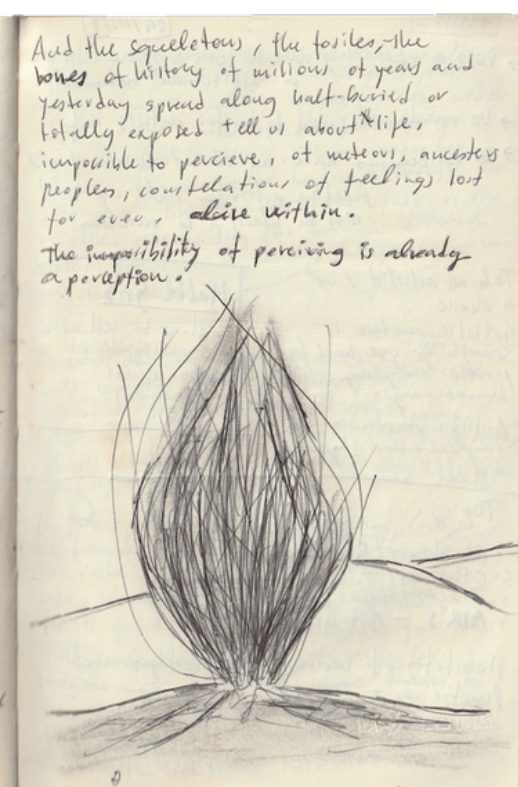 And the squeletons, the fosiles, the
bones of history of milions of years and
yesterday spread along half-buried or
totally exposed tell us about life,
impossible to percieve, of meteors, ancesters
peoples, constelations of feelings lost
for ever, alive within.
The impossibility of perceiving is already
a perception.